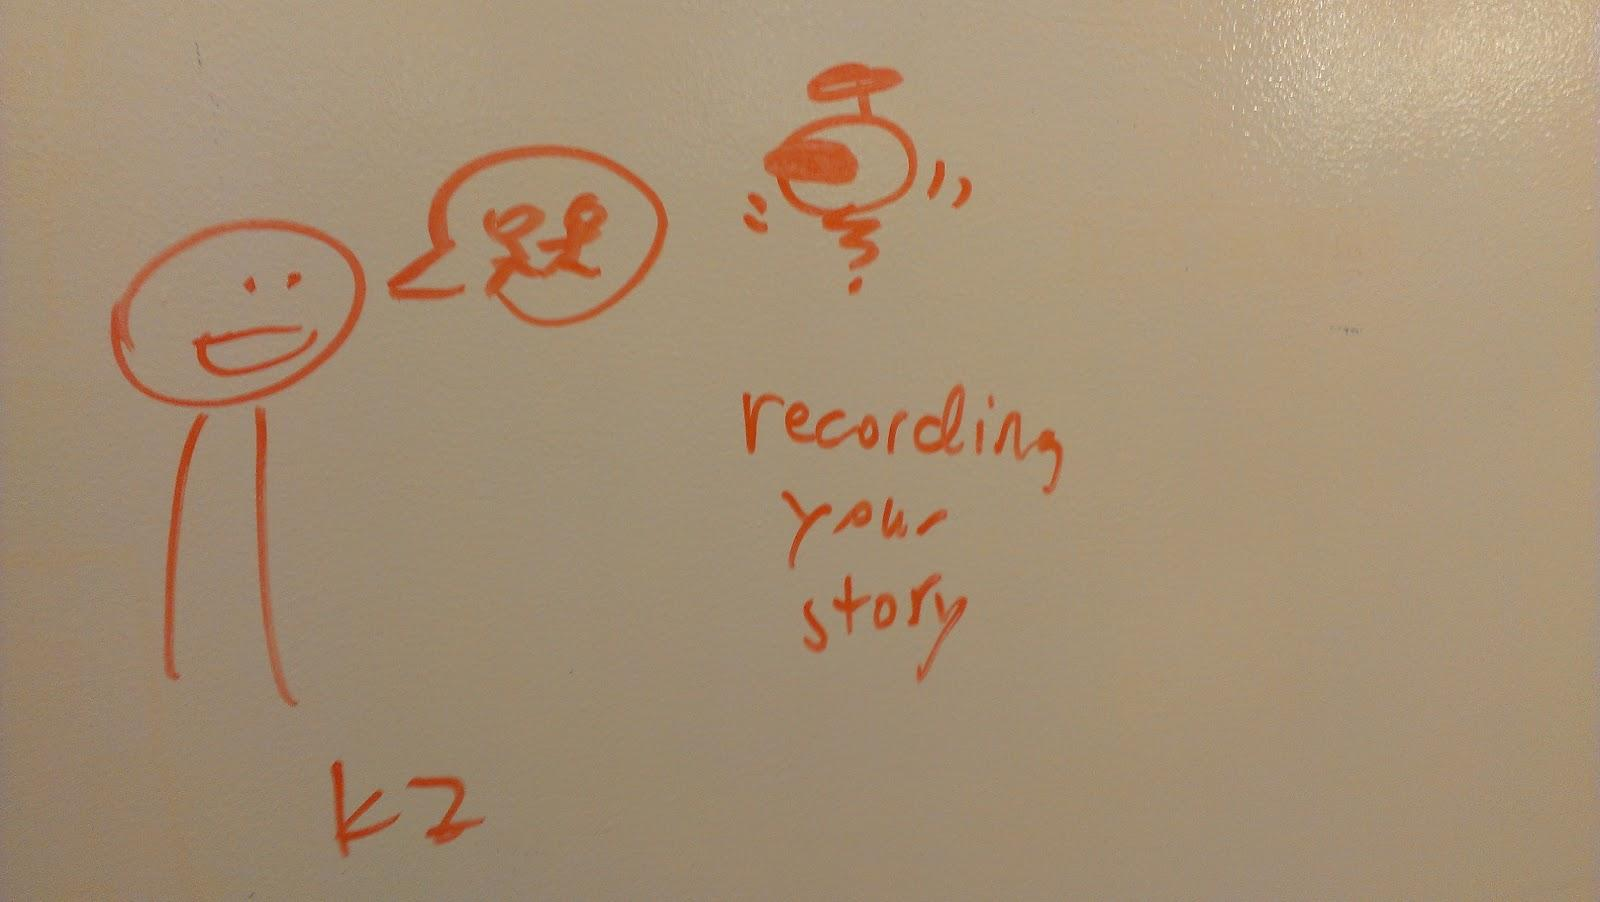 recording
your
story
kz